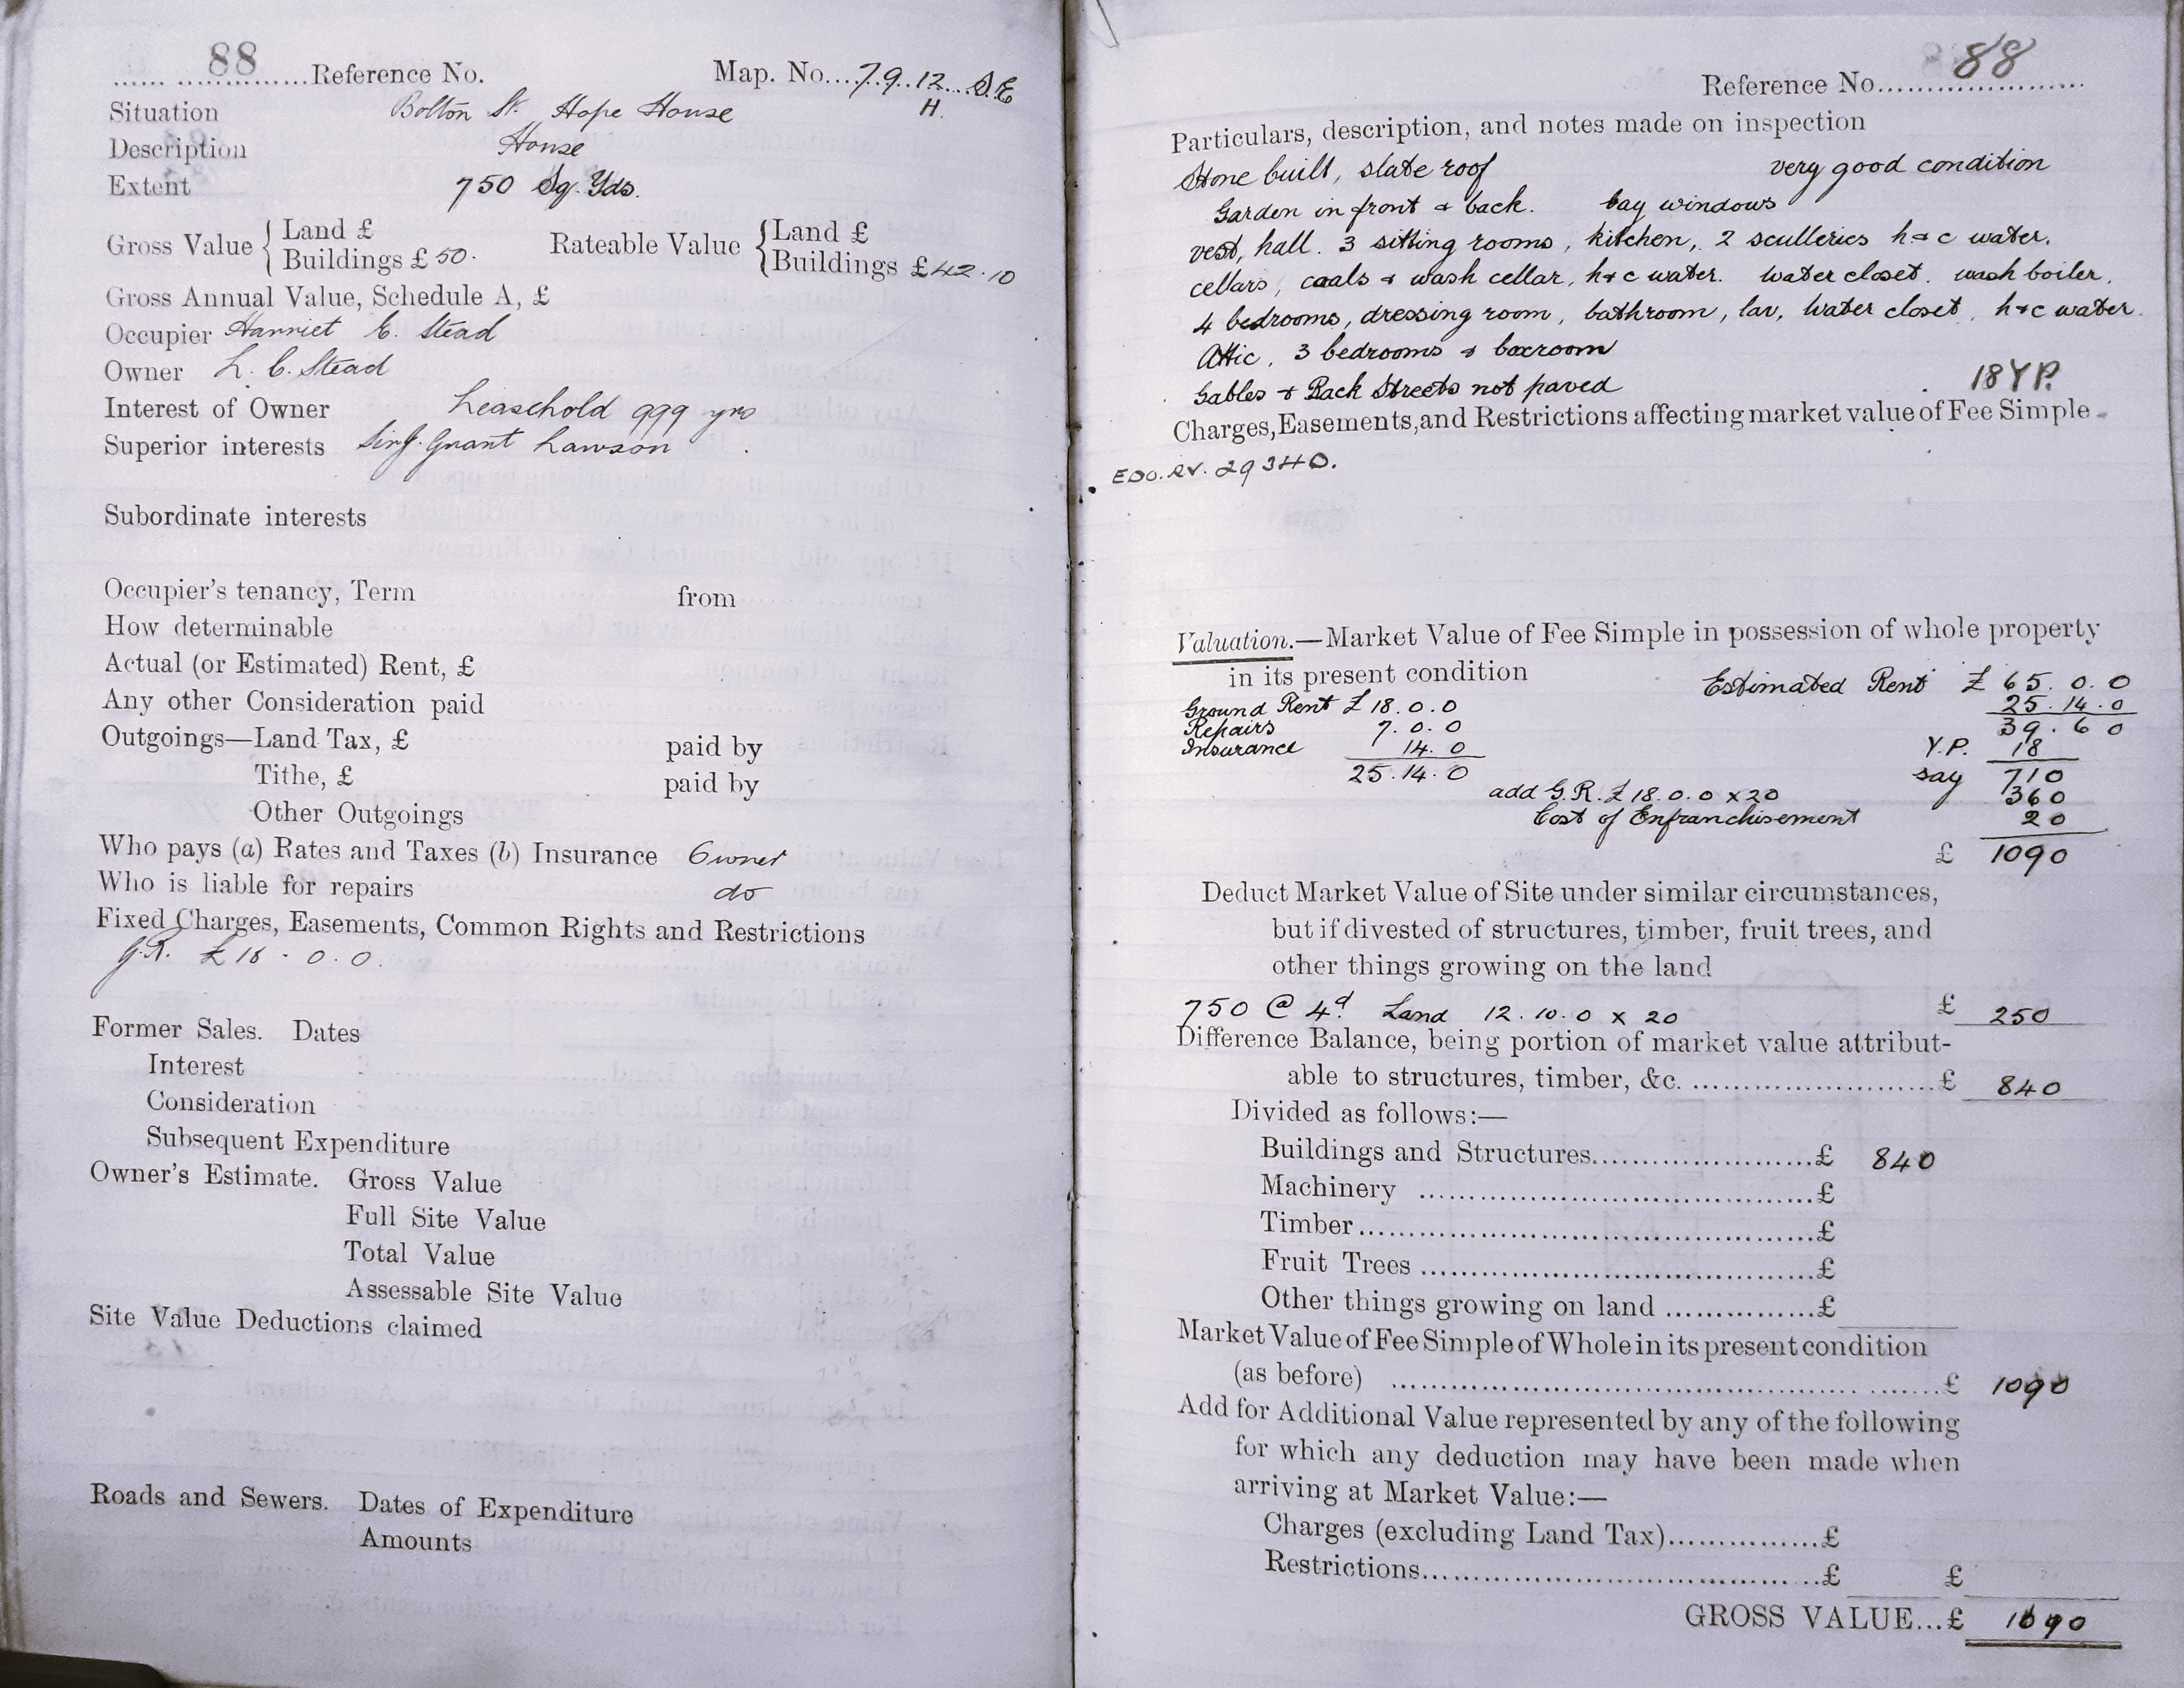 88 Reference No. Map. No. 79.12 S.E
H.
Situation Bolton St. Hope House
Description House
Extent 750 Sq. Yds.
Gross Value { Land £
Buildings £ 50.
Rateable Value { Land £
Buildings £42.10
Gross Annual Value, Schedule A, £
Occupier Harriet E. Stead
Owner L. C. Stead
Interest of Owner Leasehold 999 yrs
Superior interests Sir J. Grant Lawson
Subordinate interests
Occupier's tenancy, Term from
How determinable
Actual (or Estimated) Rent, £
Any other Consideration paid
Outgoings—Land Tax, £ paid by
Tithe, £ paid by
Other Outgoings
Who pays (a) Rates and Taxes (b) Insurance Owner
Who is liable for repairs do
Fixed Charges, Easements, Common Rights and Restrictions
G.R. £18.0.0.
Former Sales. Dates
Interest
Consideration
Subsequent Expenditure
Owner's Estimate. Gross Value
Full Site Value
Total Value
Assessable Site Value
Site Value Deductions claimed
Roads and Sewers. Dates of Expenditure
Amounts
Reference No. 88
Particulars, description, and notes made on inspection
Stone built, slate roof very good condition
Garden in front & back. bay windows
vest, hall. 3 sitting rooms, kitchen, 2 sculleries h & c water.
cellars, coals & wash cellar, h & c water. water closet. wash boiler.
4 bedrooms, dressing room, bathroom, lav, water closet, h & c water.
Attic, 3 bedrooms & boxroom
Gables & Back Streets not paved 18 Y.P.
Charges, Easements, and Restrictions affecting market value of Fee Simple
EDO. RV. 29340.
Valuation.—Market Value of Fee Simple in possession of whole property
in its present condition
Estimated Rent £ 65.0.0
Ground Rent £ 18.0.0 25.14.0
Repairs 7.0.0 39.6.0
Insurance 14.0 Y.P. 18
25.14.0 say 710
add G.R. £18.0.0 x 20 360
Cost of Enfranchisement 20
£ 1090
Deduct Market Value of Site under similar circumstances,
but if divested of structures, timber, fruit trees, and
other things growing on the land
750 @ 4d Land 12.10.0 x 20 £ 250
Difference Balance, being portion of market value attribut-
able to structures, timber, &c. £ 840
Divided as follows:—
Buildings and Structures £ 840
Machinery £
Timber £
Fruit Trees £
Other things growing on land £
Market Value of Fee Simple of Whole in its present condition
(as before) £ 1090
Add for Additional Value represented by any of the following
for which any deduction may have been made when
arriving at Market Value:—
Charges (excluding Land Tax) £
Restrictions £ £
GROSS VALUE...£ 1090